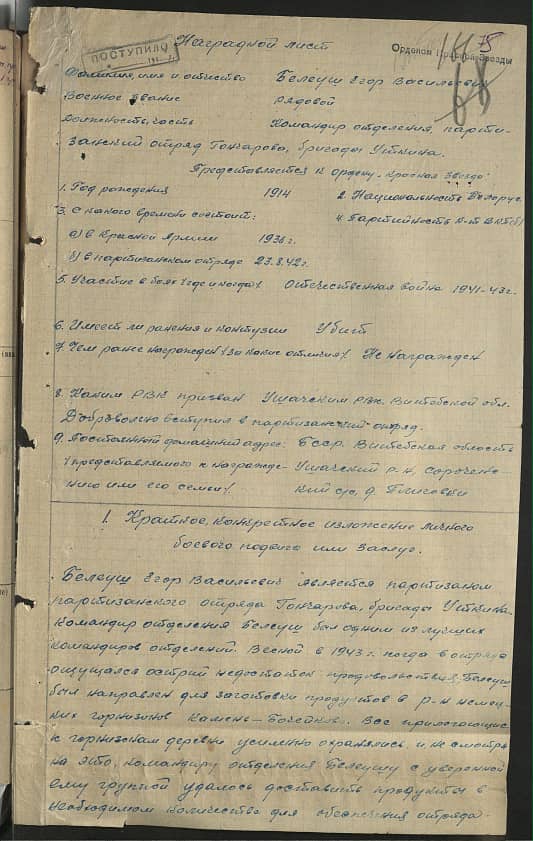 Наградной лист
ПОСТУПИЛО
Орденом Красной Звезды
75
68
Фамилия, имя и отчество Белеуш Егор Васильевич
Военное звание рядовой
Должность, часть Командир отделения, парти-
занский отряд Гончарова, бригады Уткина.
Представляется к ордену „Красная Звезда"
1. Год рождения 1914 2. Национальность Белорус
3. С какого времени состоит: 4. Партийность к-т ВКП(б)
а) в Красной Армии 1936 г.
б) в партизанском отряде 23.8.42 г.
5. Участие в боях (где и когда) Отечественная война 1941-43 г.
6. Имеет ли ранения и контузии Убит
7. Чем ранее награжден (за какие отличия) Не награжден
8. Каким РВК призван Ушачским РВК. Витебской обл.
Добровольно вступил в партизанский отряд.
9. Постоянный домашний адрес: БССР. Витебская область
(представляемого к награжде- Ушачский р-н, Сорочен-
нию или его семьи). ский с/с, д.
1. Краткое, конкретное изложение личного
боевого подвига или заслуг.
Белеуш Егор Васильевич является партизаном
партизанского отряда Гончарова, бригады Уткина.
Командир отделения Белеуш был одним из лучших
командиров отделений. Весной в 1943 г. когда в отряде
ощущался острый недостаток продовольствия, Белеуш
был направлен для заготовки продуктов в р-н немец-
ких гарнизонов Камень – Бочейково. Все прилегающие
к гарнизонам деревни усиленно охранялись и не смотря
на это, командиру отделения Белеушу с вверенной
ему группой удалось доставить продукты в
необходимом количестве для обеспечения отряда.